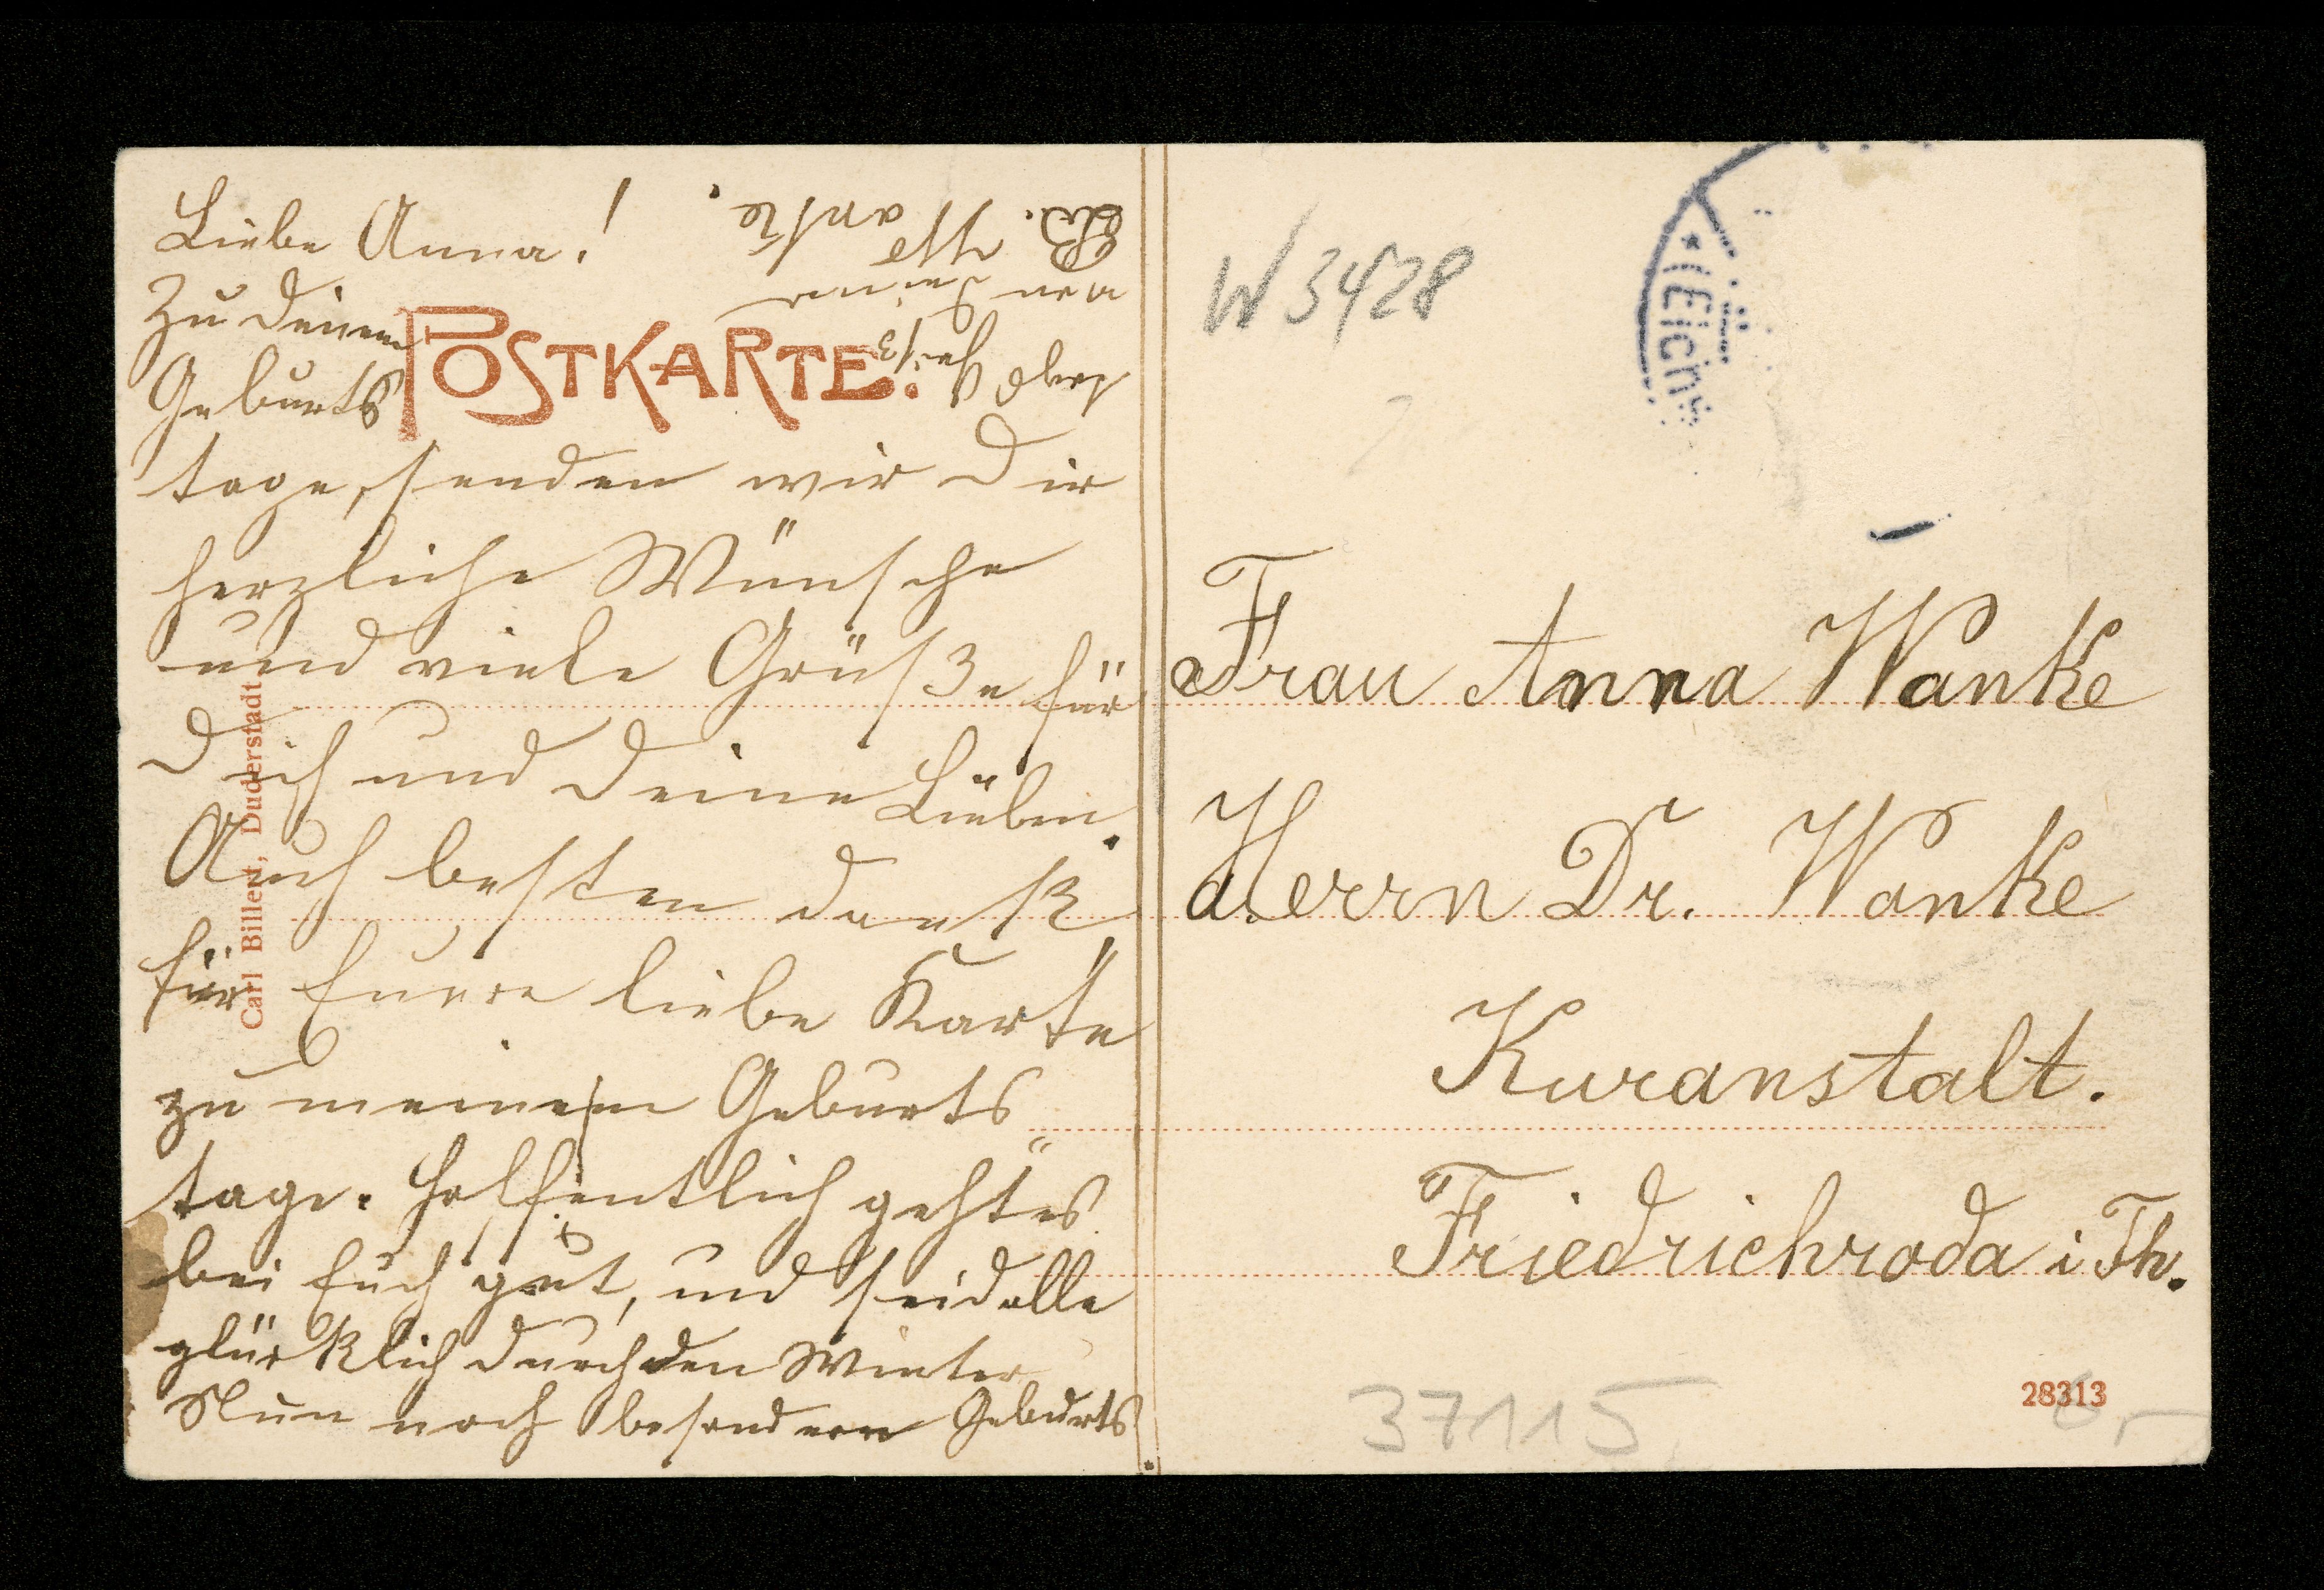 Liebe Anna!
Zu Deinem
Geburts
tage, senden wir Dir
herzliche Wünsche
und viele Grüße für
Dich und Deine Lieben.
Auch besten Dank
für Euere liebe Karte
zu meinem Geburts
tage. Hoffentlich geht es
bei Euch gut, und seid alle
glücklich durch den Winter
Nun noch besondern Geburts
von Deiner
POSTKARTE.
Carl Billert, Duderstadt
W 3428
(Eich
Frau Anna Wanke
Herrn Dr. Wanke
Kuranstalt.
Friedrichroda i Th.
28313
37115